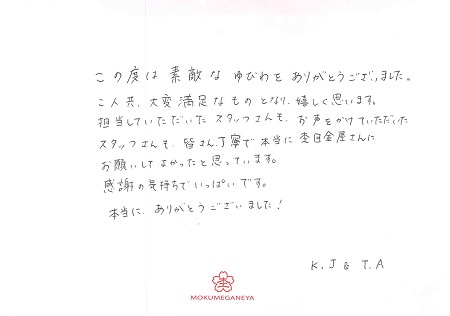 この度は素敵なゆびわをありがとうございました。
二人共、大変満足なものとなり、嬉しく思います。
担当していただいたスタッフさんも、お声をかけていただいた
スタッフさんも、皆さん丁寧で本当に杢目金屋さんに
お願いしてよかったと思っています。
感謝の気持ちでいっぱいです。
本当に、ありがとうございました!
K.J & T.A
MOKUMEGANEYA